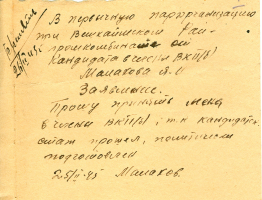 В первичную парторганизацию
при Вешкаймском Рай-
промкомбинате от
Кандидата в члены ВКП(б)
Малахова
Заявление.
Прошу принять меня
в члены ВКП(б), т.к. кандидатский
стаж прошел, политически
подготовлен
Малахов